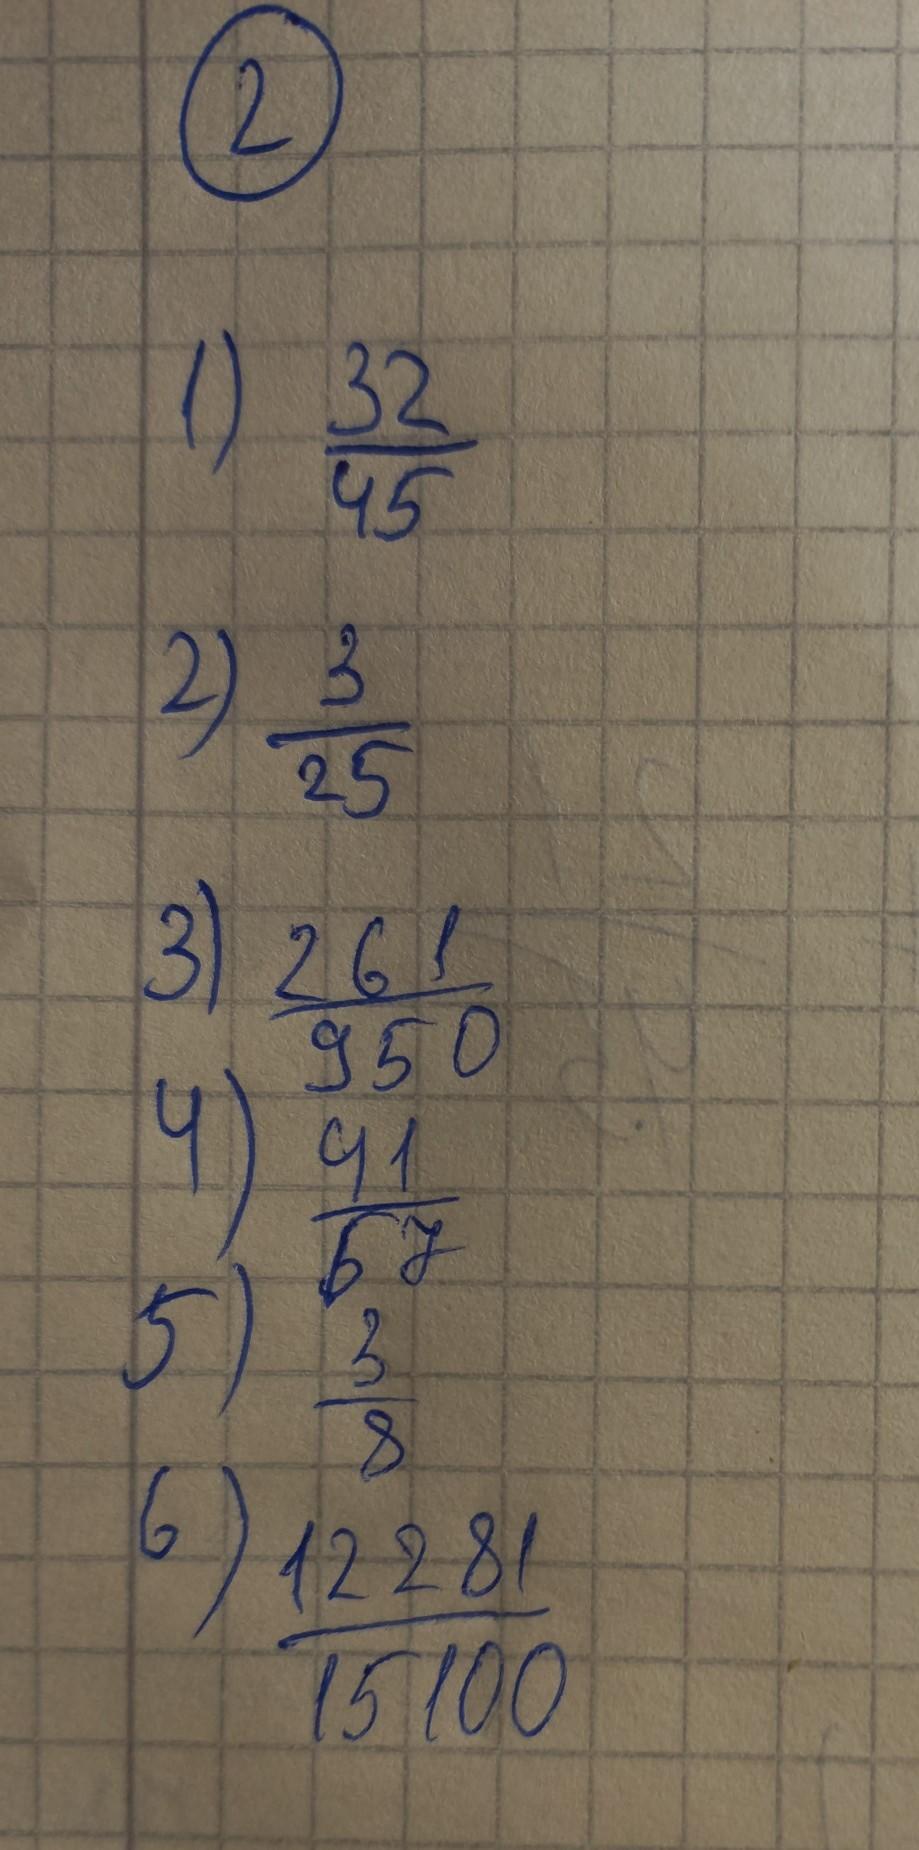 2
1) 32/45
2) 3/25
3) 261/950
4) 41/67
5) 3/8
6) 12281/15100